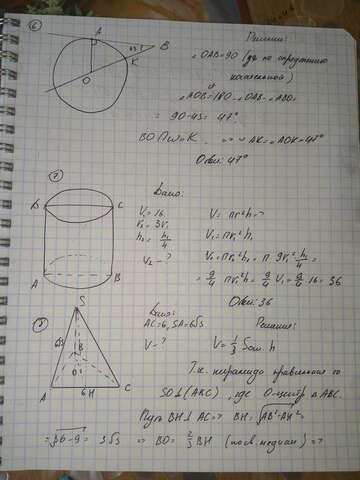 ⑥
A
43°
B
K
O
Решение:
∠OAB=90 (где по определению касательной)
∠AOB=180-∠OAB-∠ABO=
= 90-43= 47°
BO∩ω=K. ⇒ ∪AK=∠AOK=47°
Ответ: 47°
⑦
Дано:
V₁=16.
r₂=3r₁
h₂=h₁/4
V₂-?
V=πr²h=?
V₁=πr₁²h₁
V₂=πr₂²h₂=π·9r₁²·h₁/4=
=9/4 πr₁²h₁=9/4 V₁=9/4·16=36
Ответ: 36
B
C
A
B
S
Дано:
AC=6, SA=6√5
V-?
Решение:
V=1/3 Sосн.h
Т.к. пирамида правильная то
SO⊥(ABC), где O-центр △ABC.
Пусть BH⊥AC⇒ BH=√AB²-AH²=
=√36-9= 3√3 ⇒ BO=2/3BH (посв.медиан) ⇒
B
O
A
6
H
C